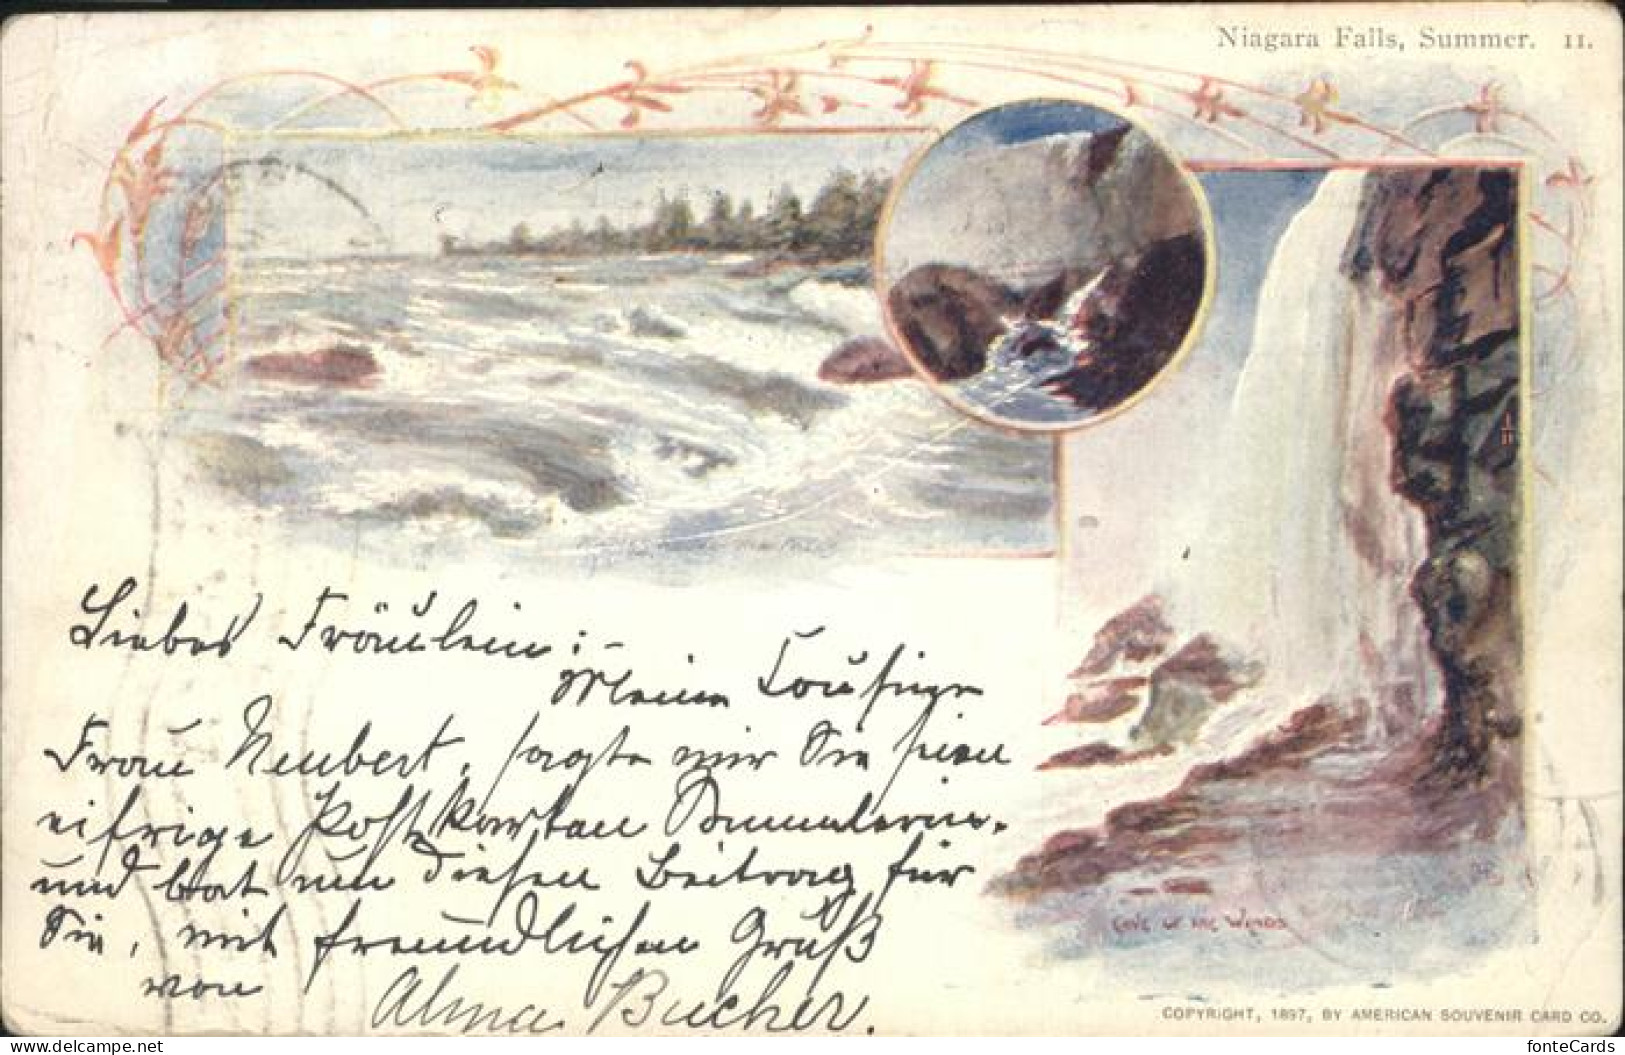 Niagara Falls, Summer. 11.
Liebes Fräulein:-
Meine Cousine
Frau Neubert, sagte mir Sie seien
eifrige Postkarten Sammlerin,
und bat um diesen Beitrag für
Sie, mit freundlichem Gruß
von Alma Bucher.
Cave of the Winds
COPYRIGHT, 1897, BY AMERICAN SOUVENIR CARD CO.
delcampe.net
fonteCards